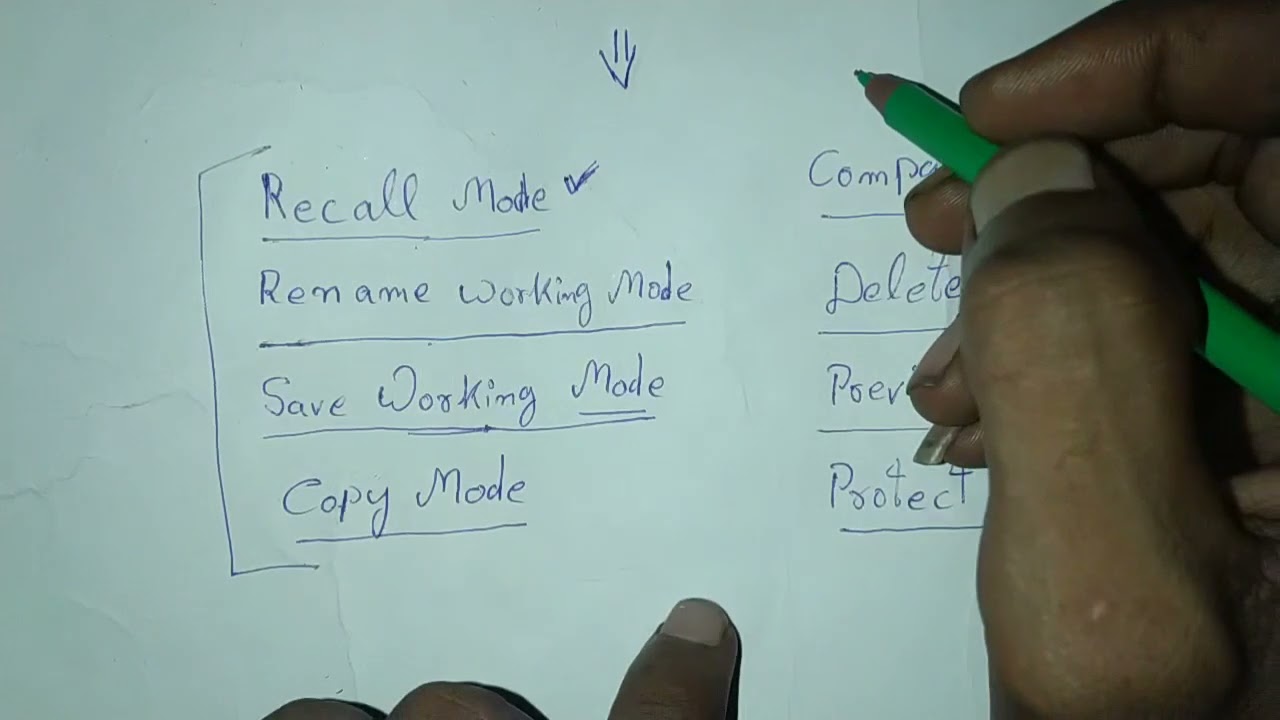 Recall Mode
Rename Working Mode
Save Working Mode
Copy Mode
Delete
Protect